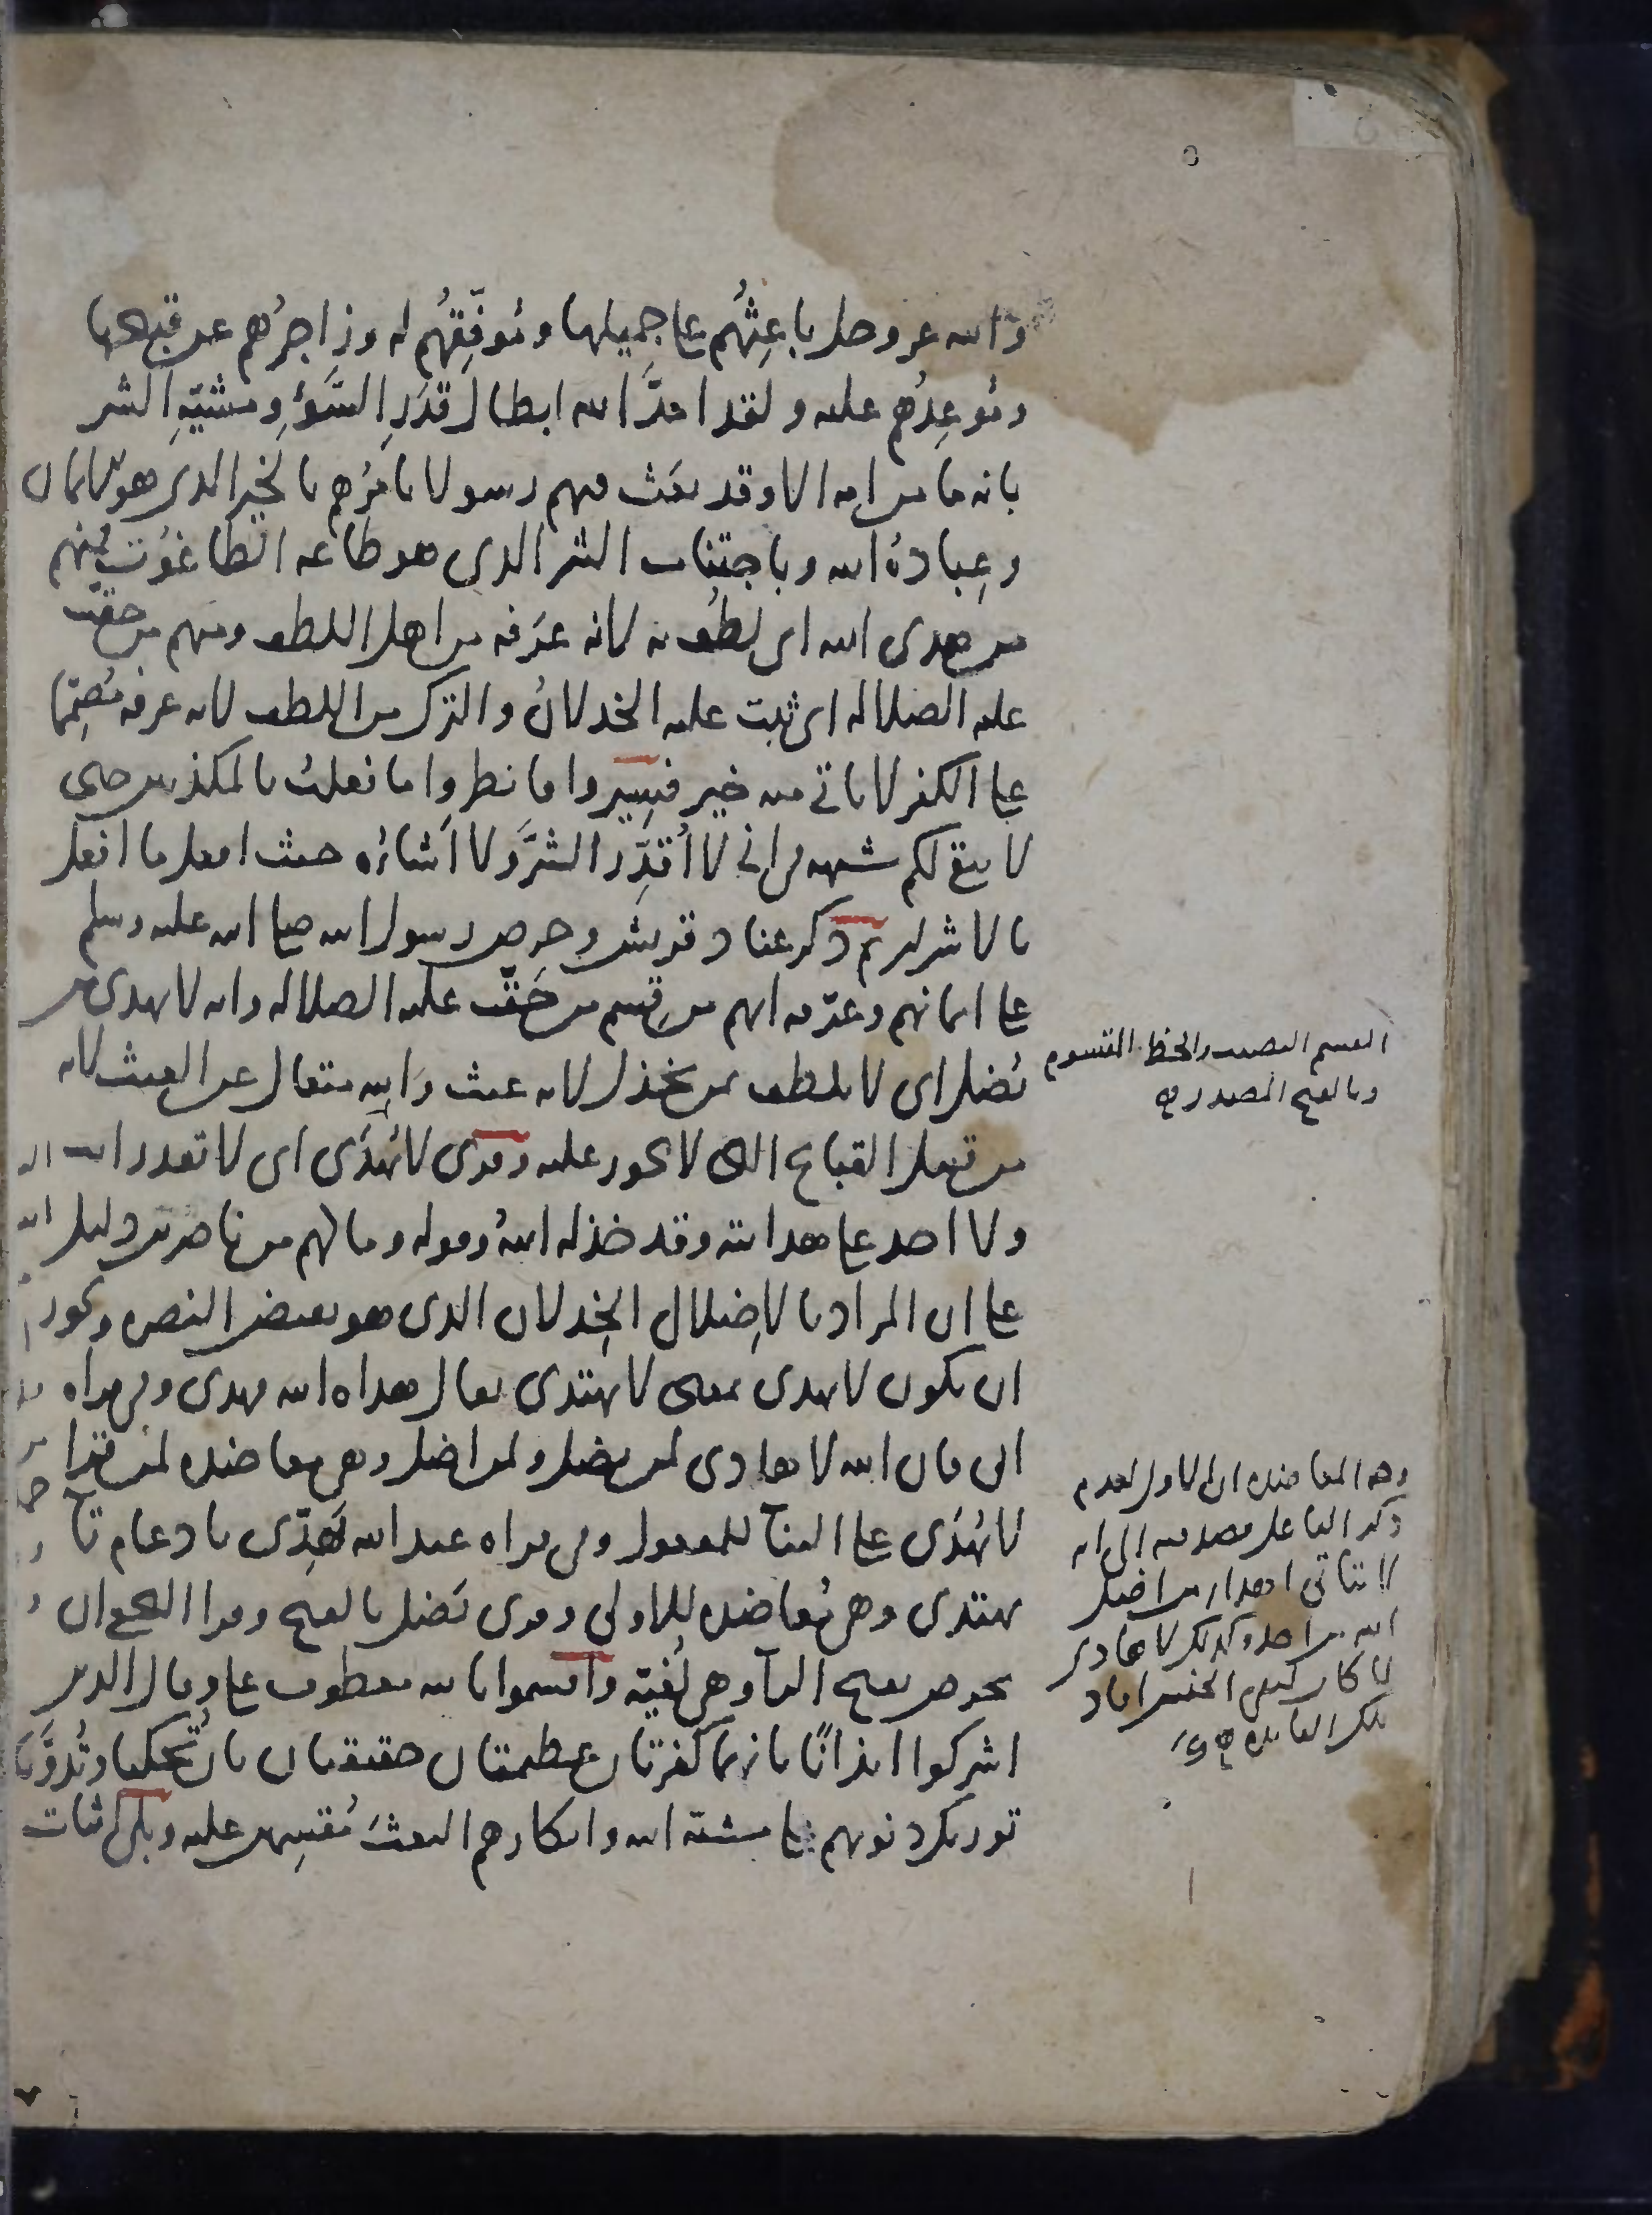 والله عز وجل باعِثُهُم على جميلها ومُوفِّقُهُم له وزاجِرُهُم عن قبيحها
ومُوعِدُهم عليه ولقد امدَّ الله ابطال قَدَرِ السَّوءِ ومشيّةِ الشر
بانه ما من امه الا وقد بعَث فيهم رسولا يامرُهم بالخير الذى هو الايمان
وعِبادةُ الله وباجتناب الشر الذى هو طاعه الطاغُوت فمنهم
من هدى الله اى لطُف به لانه عرَفه من اهل اللطف ومنهم من حقّت
عليه الضلاله اى ثبت عليه الخذلانُ والترك من اللطف لانه عرفه مُصمِّما
على الكفر لا ياتى منه خير فسِيروا فانظروا ما فعلتُ بالمكذبين حتى
لا يبقى لكم شبهه فى انى لا أُقدِّر الشرَّ ولا اَشاؤه حيث افعل ما افعل
بالاشرار ثم ذكر عناد قريش وحرص رسول الله صلى الله عليه وسلم
على ايمانهم وعرّفه انهم من قِسم من حَقّت عليه الضلاله وانه لا يهدى من
يُضل اى لا يلطف بمن يخذل لانه عبث والله متعال عن العبث لانه
من قبيل القبائح التى لا تجوز عليه وقرى لا يُهدَى اى لا تقدر انت
ولا احد على هدايته وقد خذله اللهُ وقوله وما لهم من ناصرين دليل
على ان المراد بالإضلال الخِذلان الذى هو نقيض النصره ويجوز
ان يكون لا يهدى بمعنى لا يهتدى يقال هداه الله فهدى وفى قراه
ابى فان الله لا هادى لمن يضل ولمن اضل وهى معاضده لمن قرا
لا يُهدَى على البناء للمفعول وفى قراه عبد الله يَهِدّى بادغام تاء
يهتدى وهى مُعاضده للاولى وقرى يَضل بالفتح وقرا النخعى ان
تحرص بفتح الراء وهى لُغيّة واقسموا بالله معطوف على وقال الذين
اشركوا ايذانًا بانهما كفرتان عظيمتان حقيقتان بان تُحكيا وتُدوَّنا
توريك ذنوبهم على مشيّة الله وانكارهم البعثَ مُقسِمين عليه وبلى اثبات
القسم النصيب والحظ المقسوم
وبالفتح المصدر
وجه المعاضده ان الاول لعدم
ذكر الفاعل قصد فيه الى انه
لا يتاتى اهدار من اضل
الله من احد وكذلك لا هادى
لما كان لنفى الجنس افاد
تلك الفايده